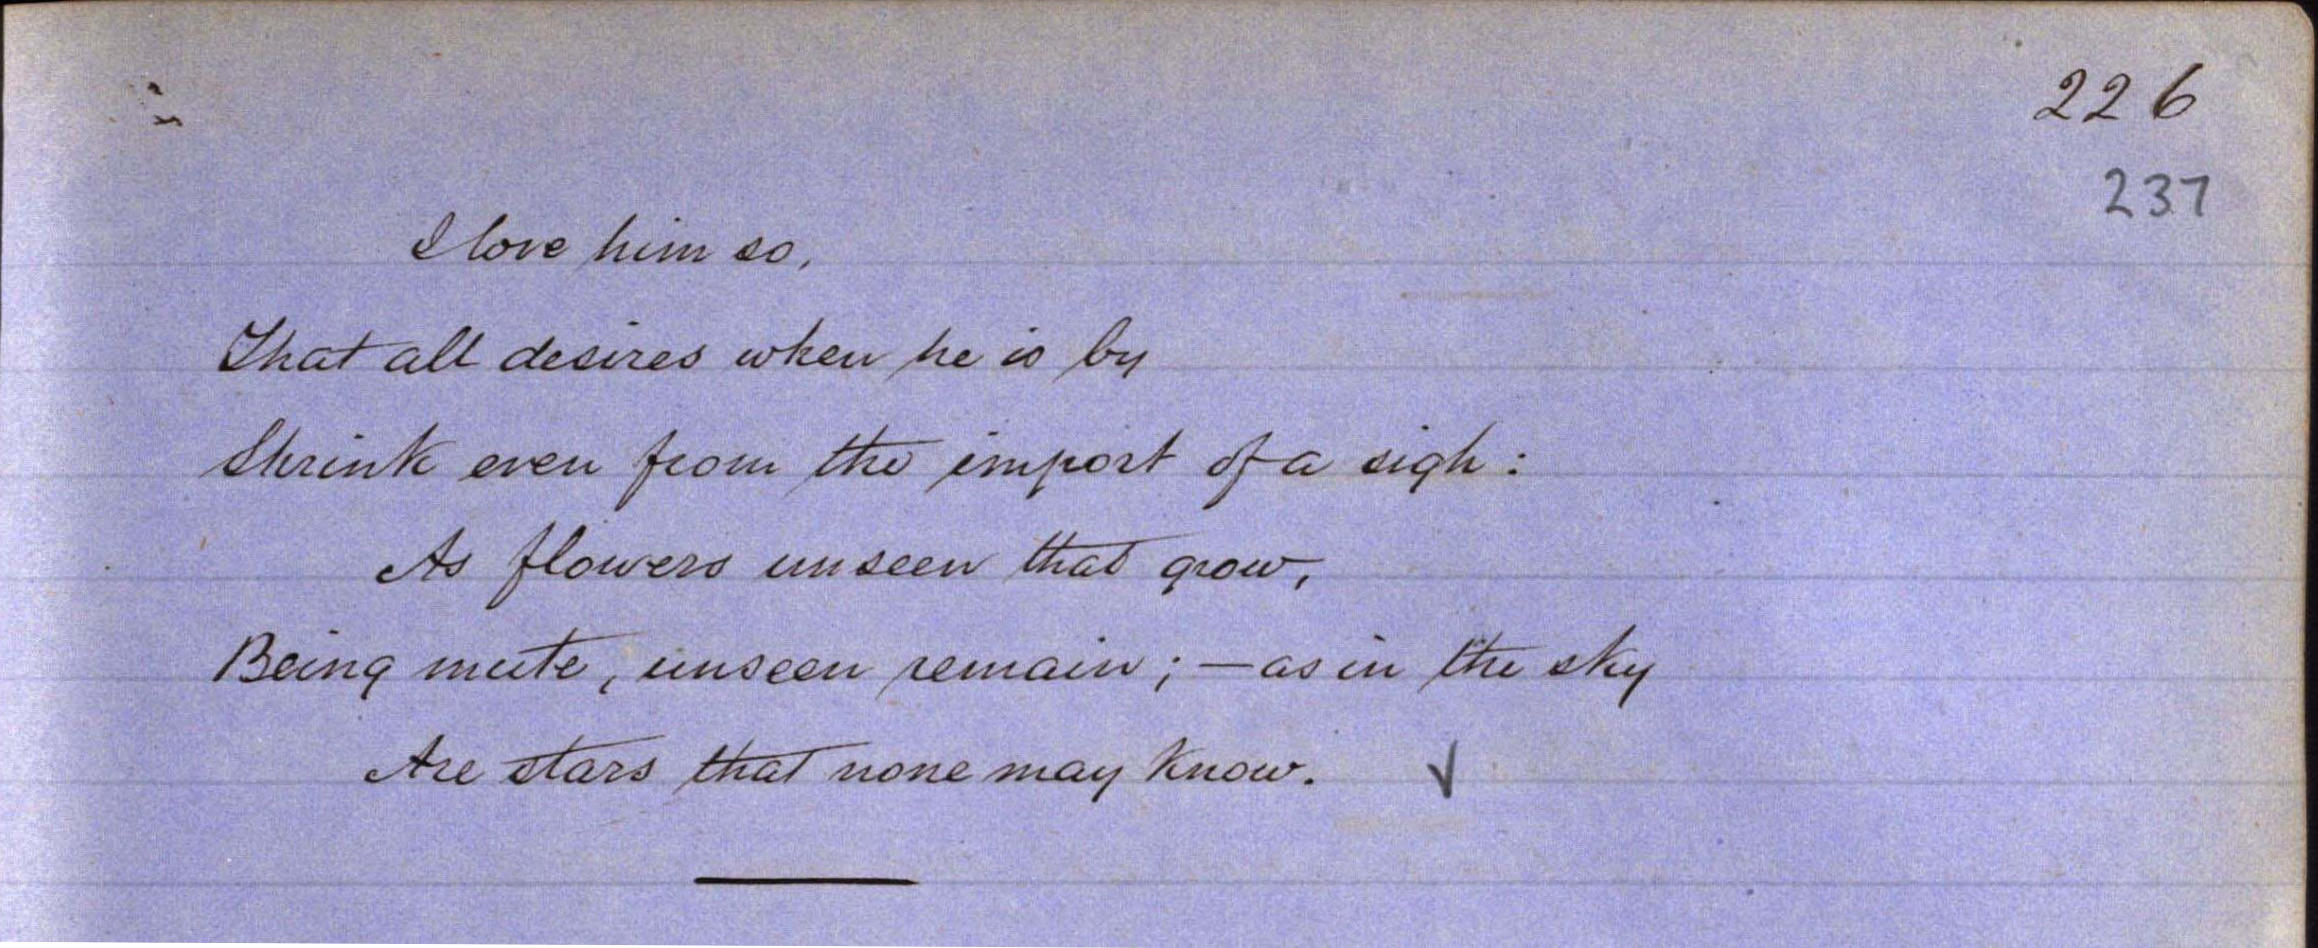 226
237
I love him so,
That all desires when he is by
Shrink even from the import of a sigh:
As flowers unseen that grow,
Being mute, unseen remain; — as in the sky
Are stars that none may know. ✓